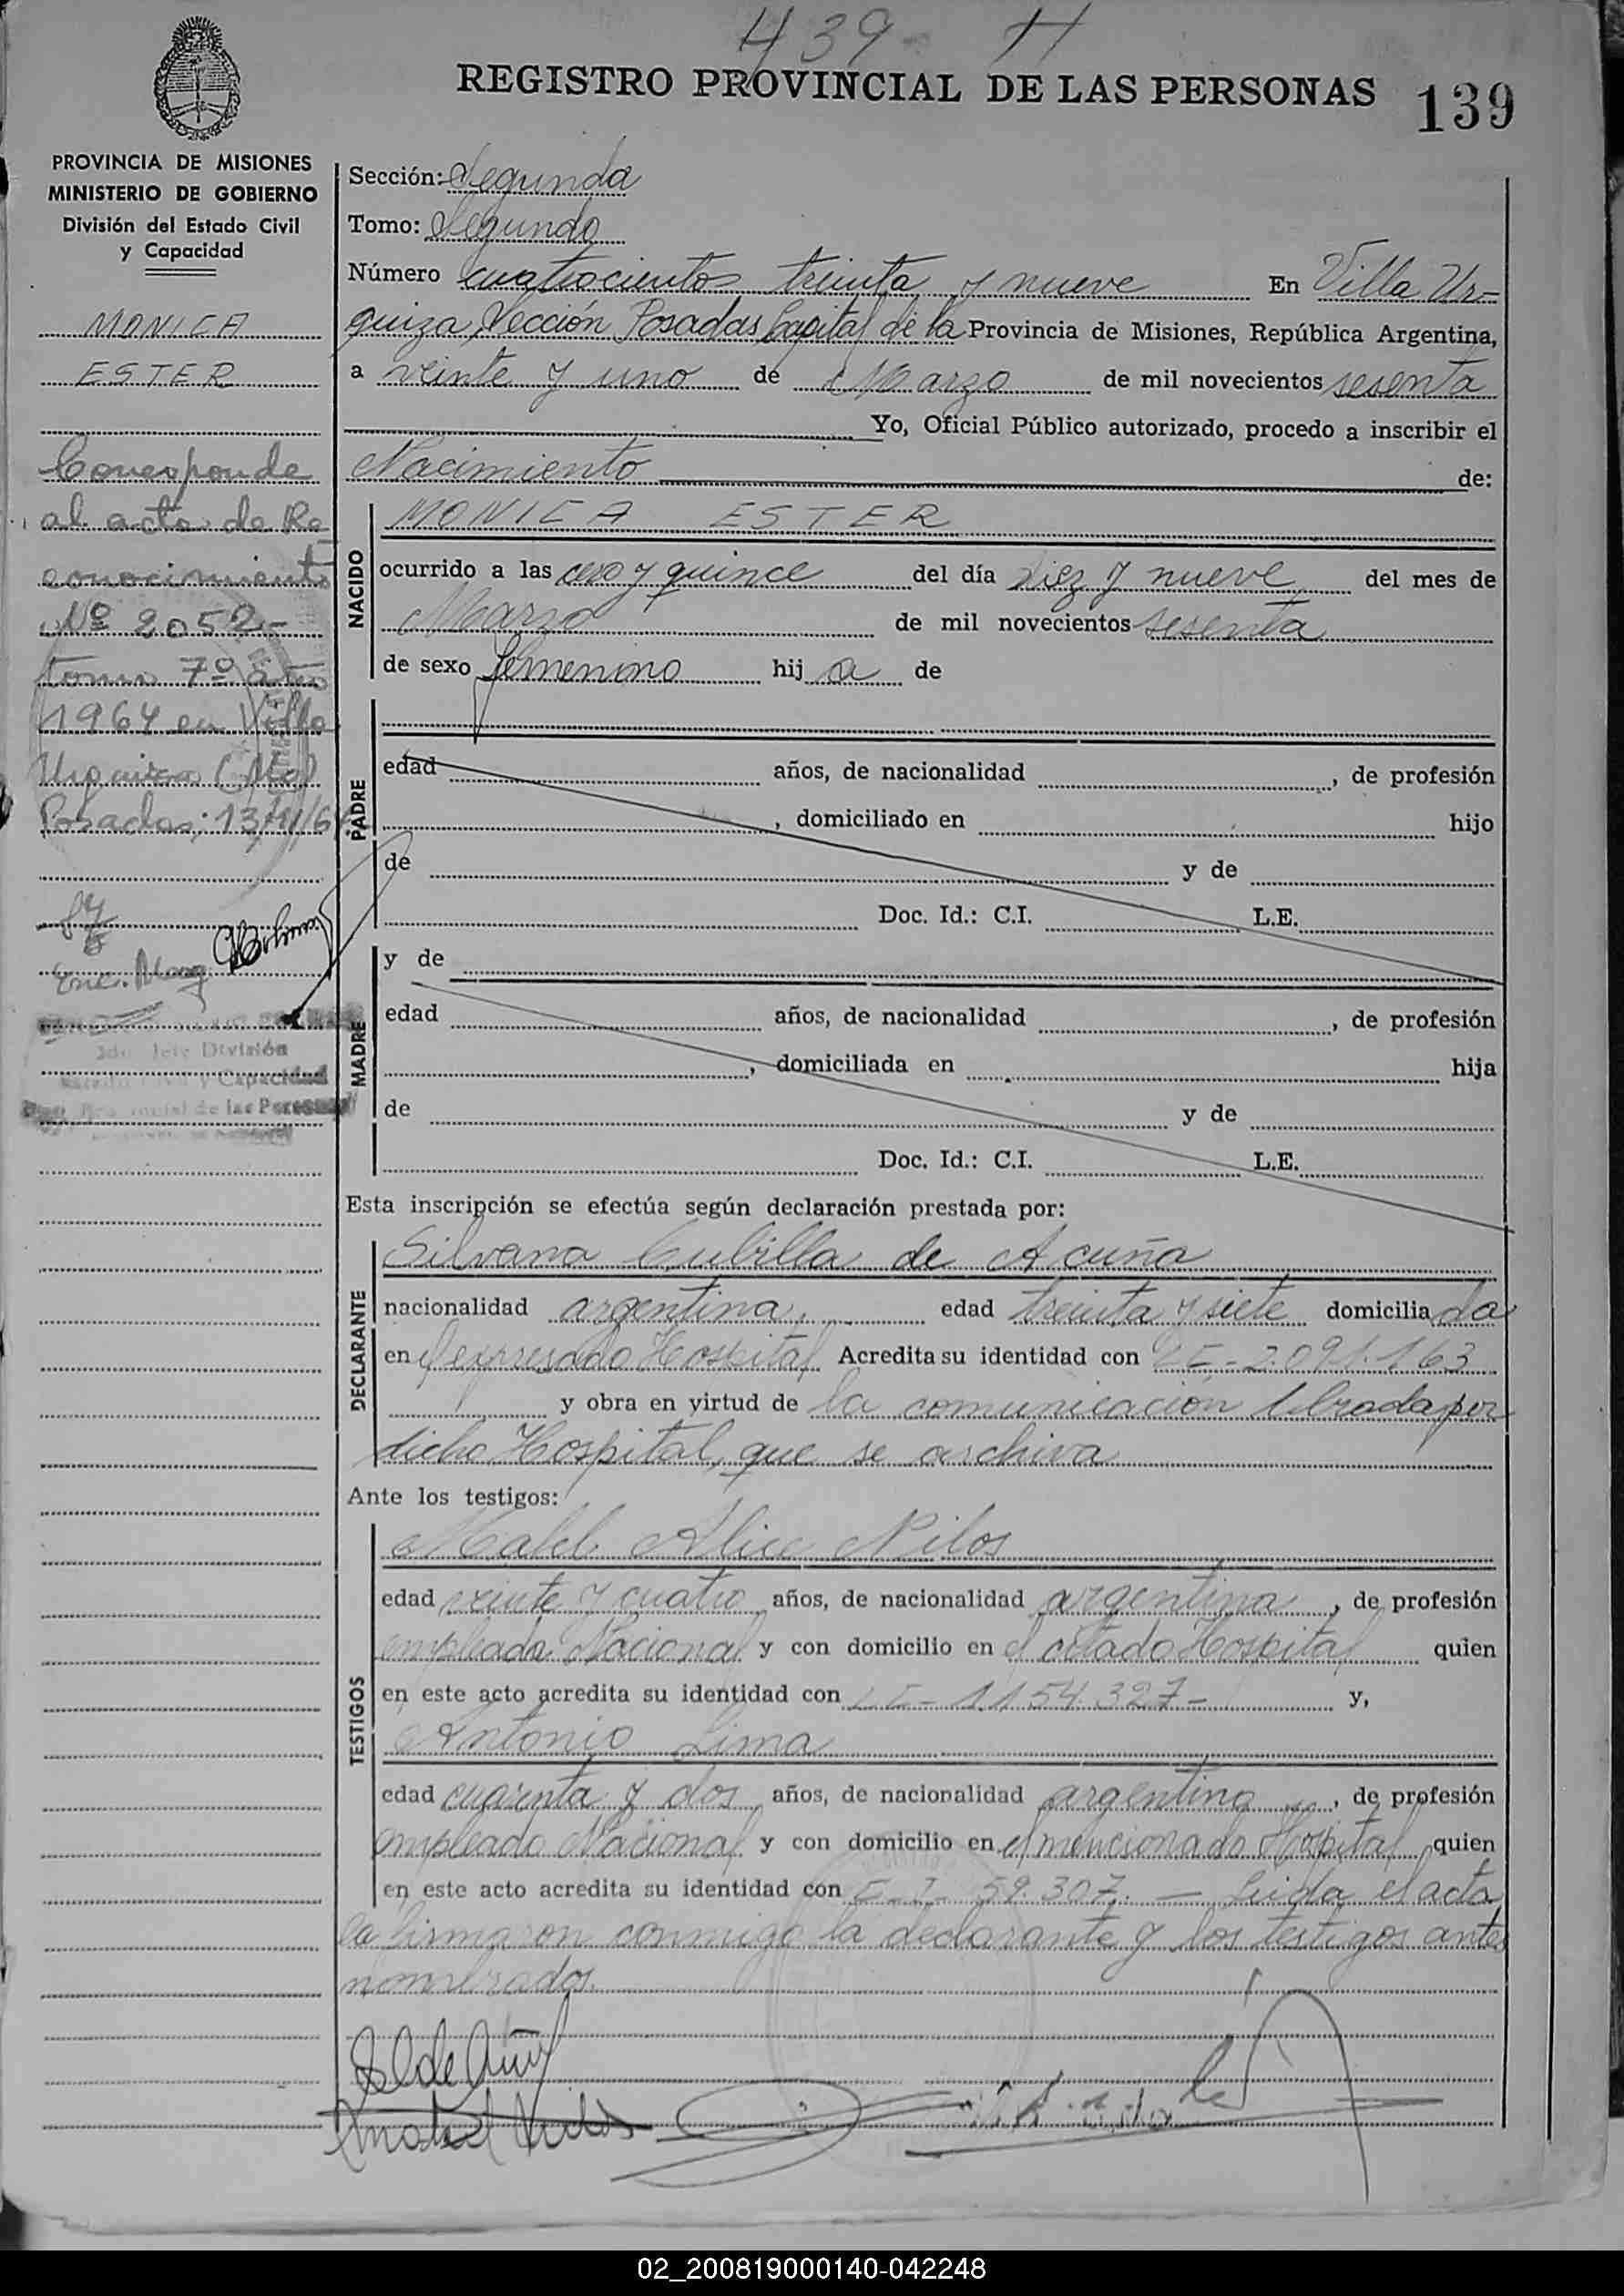 439-
REGISTRO PROVINCIAL DE LAS PERSONAS 139
PROVINCIA DE MISIONES
MINISTERIO DE GOBIERNO
División del Estado Civil
y Capacidad
MONICA
ESTER
Corresponde
al acta de Re
conocimiento
Nº 2052-
tomo 7º año
1964 en Villa
Urquiza (Mnes)
Posadas; 13/
Enc. Marg
2do Jefe División
Estado Civil y Capacidad
Reg. Provincial de las Personas
Sección: Segunda
Tomo: Segundo
Número cuatrocientos treinta y nueve En Villa Ur-
quiza, Sección Posadas Capital de la Provincia de Misiones, República Argentina,
a veinte y uno de Marzo de mil novecientos sesenta
Yo, Oficial Público autorizado, procedo a inscribir el
Nacimiento de:
NACIDO
MONICA ESTER
ocurrido a las cero y quince del día diez y nueve del mes de
Marzo de mil novecientos sesenta
de sexo femenino hij a de
PADRE
edad años, de nacionalidad , de profesión
, domiciliado en hijo
de y de
Doc. Id.: C.I. L.E.
MADRE
y de
edad años, de nacionalidad , de profesión
, domiciliada en hija
de y de
Doc. Id.: C.I. L.E.
Esta inscripción se efectúa según declaración prestada por:
DECLARANTE
Silvana Cubilla de Acuña
nacionalidad argentina, edad treinta y siete domicilia da
en el expresado Hospital Acredita su identidad con 2.091.163
y obra en virtud de la comunicación librada por
dicho Hospital, que se archiva
Ante los testigos:
TESTIGOS
Mabel Alice Nilos
edad veinte y cuatro años, de nacionalidad argentina , de profesión
empleada Nacional y con domicilio en el citado Hospital quien
en este acto acredita su identidad con 1.154.327- y,
Antonio Lima
edad cuarenta y dos años, de nacionalidad argentino , de profesión
empleado Nacional y con domicilio en el mencionado Hospital quien
en este acto acredita su identidad con 59.307. — Leida el acta
la firmaron conmigo la declarante y los testigos antes
nombrados.
02_200819000140-042248